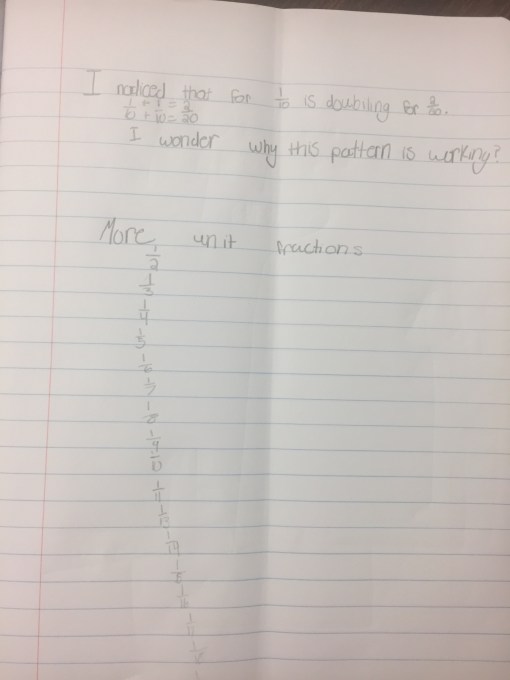 I noticed that for 1/10 is doubiling for 2/20.
1/10 + 1/10 = 2/20
I wonder why this pattern is working?
More unit fractions
1/2
1/3
1/4
1/5
1/6
1/7
1/8
1/9
1/10
1/11
1/13
1/14
1/15
1/16
1/17